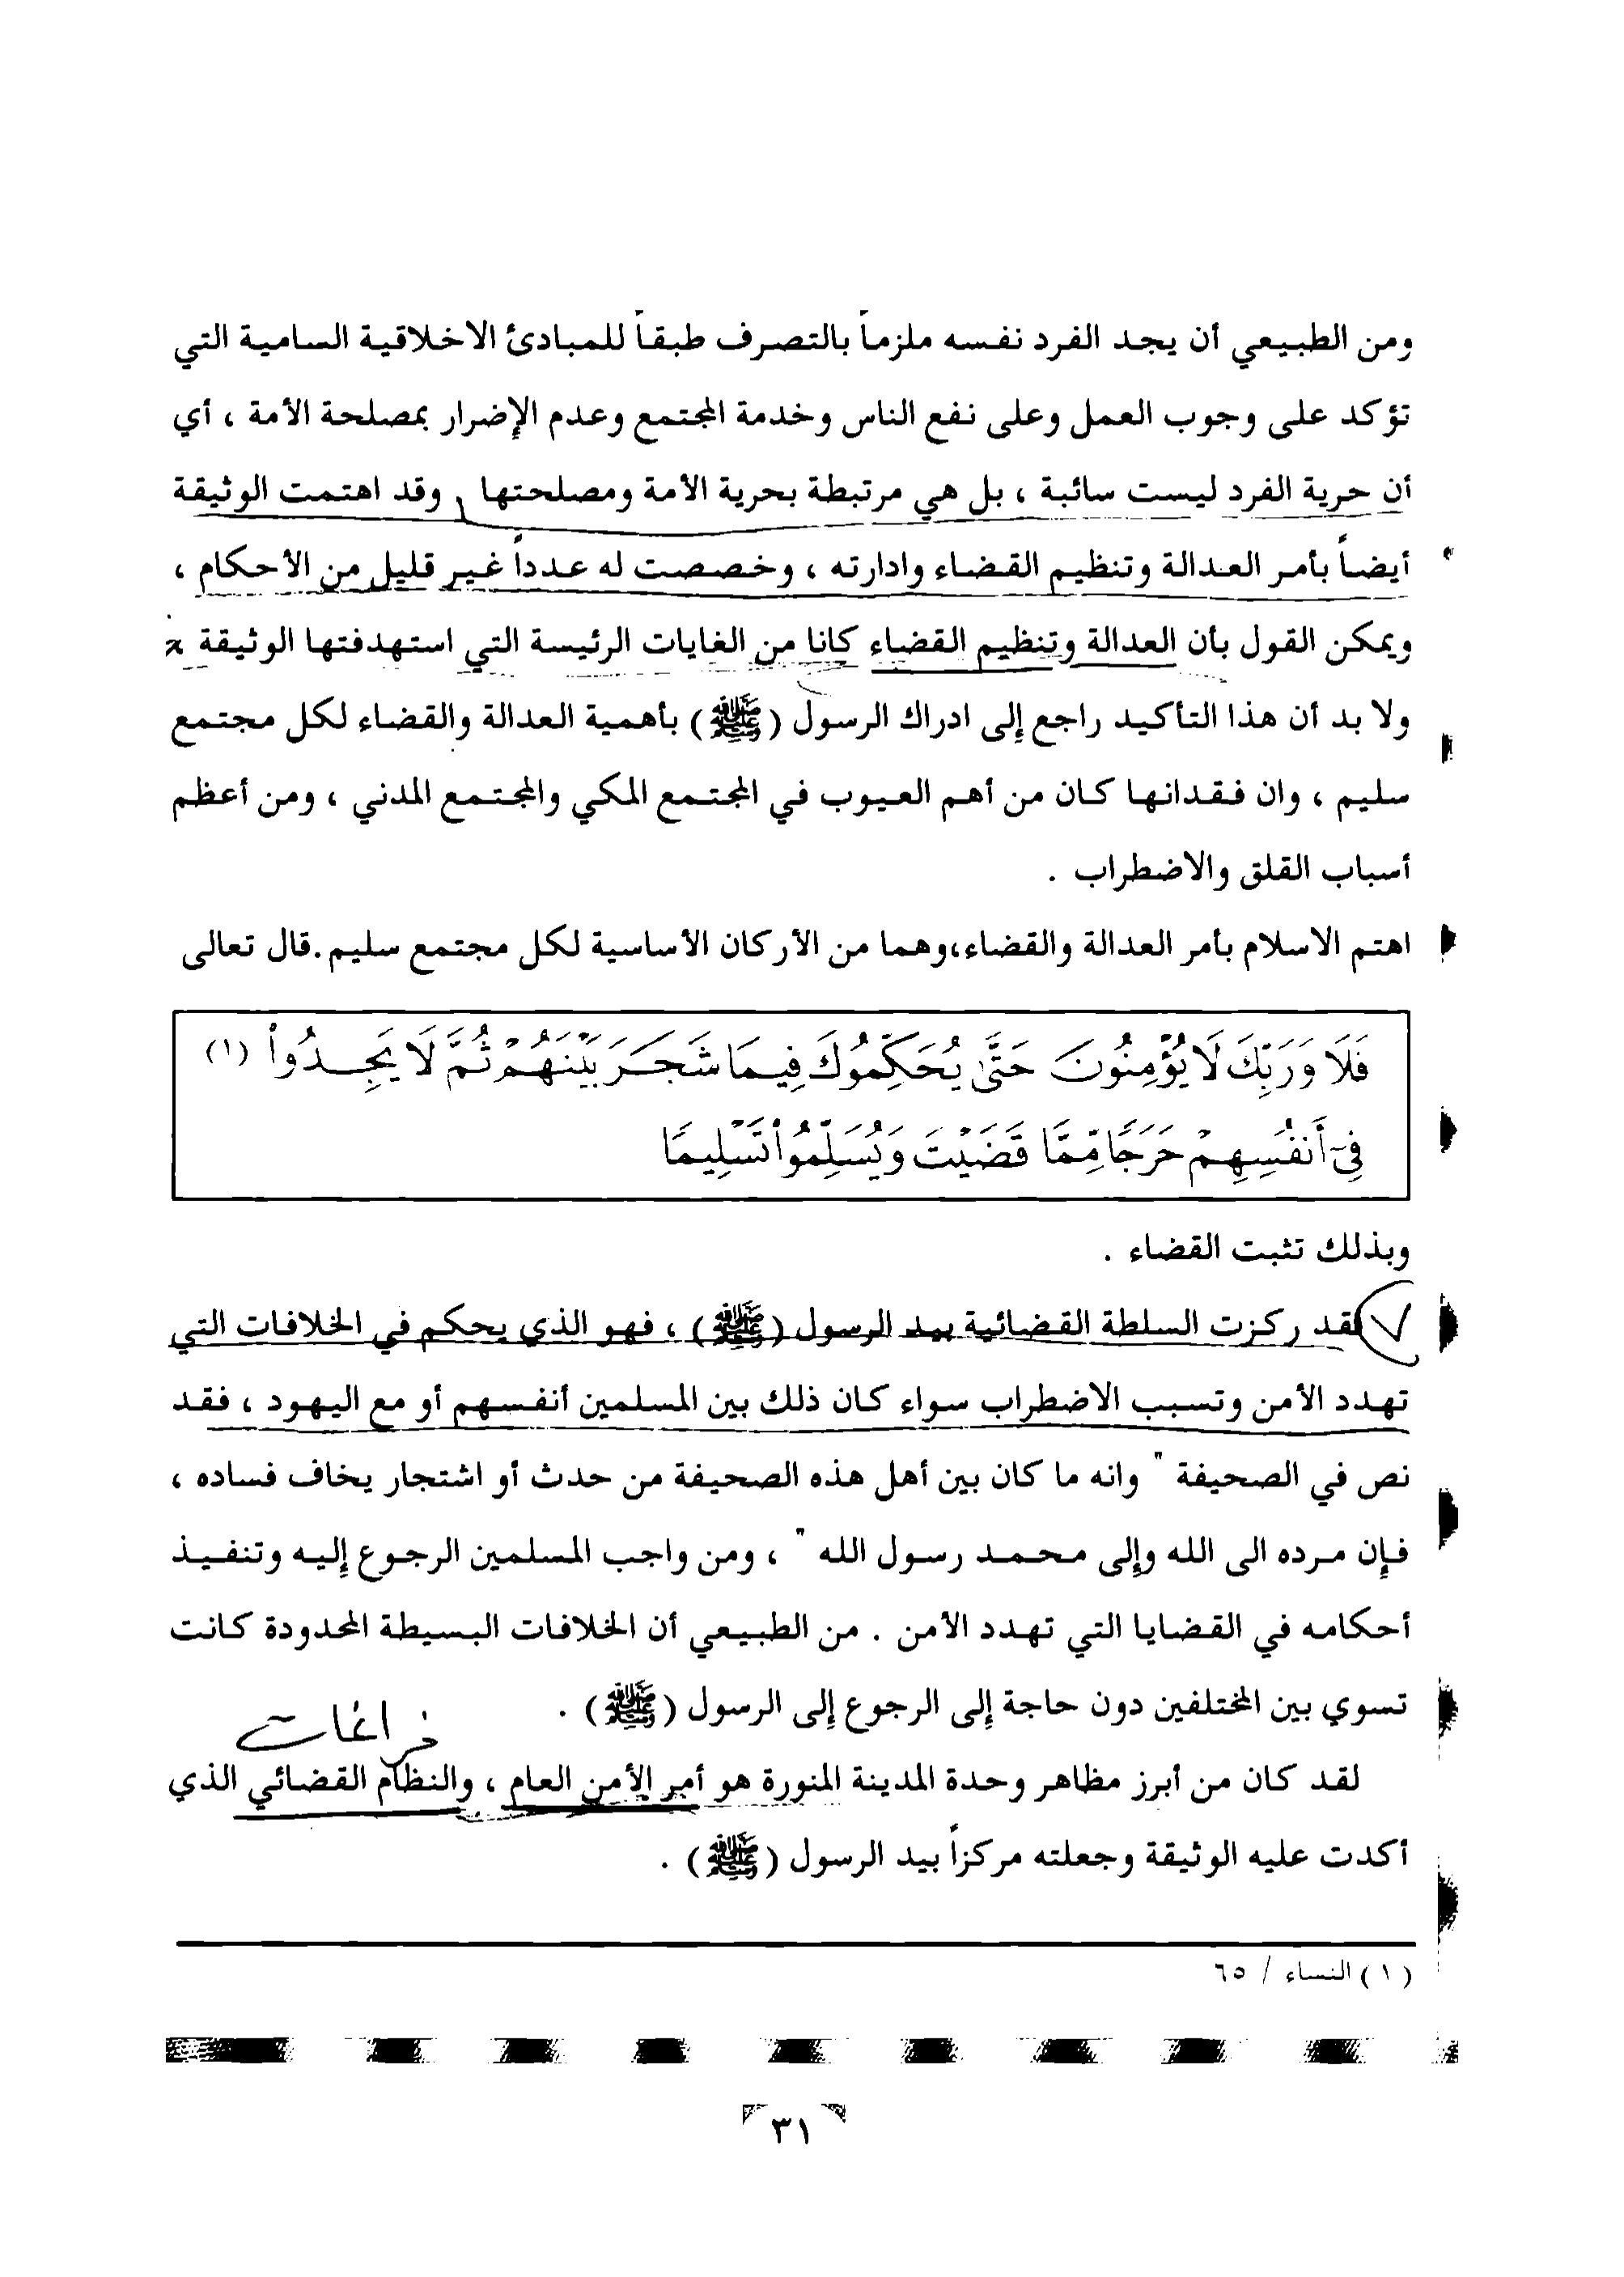 ومن الطبيعي أن يجد الفرد نفسه ملزماً بالتصرف طبقاً للمبادئ الاخلاقية السامية التي
تؤكد على وجوب العمل وعلى نفع الناس وخدمة المجتمع وعدم الإضرار بمصلحة الأمة ، أي
أن حرية الفرد ليست سائبة ، بل هي مرتبطة بحرية الأمة ومصلحتها ، وقد اهتمت الوثيقة
أيضاً بأمر العدالة وتنظيم القضاء وادارته ، وخصصت له عدداً غير قليل من الأحكام ،
ويمكن القول بأن العدالة وتنظيم القضاء كانا من الغايات الرئيسة التي استهدفتها الوثيقة
ولا بد أن هذا التأكيد راجع إلى ادراك الرسول (ﷺ) بأهمية العدالة والقضاء لكل مجتمع
سليم ، وان فقدانها كان من أهم العيوب في المجتمع المكي والمجتمع المدني ، ومن أعظم
أسباب القلق والاضطراب .
اهتم الاسلام بأمر العدالة والقضاء،وهما من الأركان الأساسية لكل مجتمع سليم.قال تعالى
فَلَا وَرَبِّكَ لَا يُؤْمِنُونَ حَتَّىٰ يُحَكِّمُوكَ فِيمَا شَجَرَ بَيْنَهُمْ ثُمَّ لَا يَجِدُواْ (١)
فِىٓ أَنفُسِهِمْ حَرَجًا مِّمَّا قَضَيْتَ وَيُسَلِّمُواْ تَسْلِيمًا
وبذلك تثبت القضاء .
لقد ركزت السلطة القضائية بيد الرسول (ﷺ) ، فهو الذي يحكم في الخلافات التي
تهدد الأمن وتسبب الاضطراب سواء كان ذلك بين المسلمين أنفسهم أو مع اليهود ، فقد
نص في الصحيفة " وانه ما كان بين أهل هذه الصحيفة من حدث أو اشتجار يخاف فساده ،
فإن مرده الى الله وإلى محمد رسول الله " ، ومن واجب المسلمين الرجوع إليه وتنفيذ
أحكامه في القضايا التي تهدد الأمن . من الطبيعي أن الخلافات البسيطة المحدودة كانت
تسوي بين المختلفين دون حاجة إلى الرجوع إلى الرسول (ﷺ) .
فراغات
لقد كان من أبرز مظاهر وحدة المدينة المنورة هو أمر الأمن العام ، والنظام القضائي الذي
أكدت عليه الوثيقة وجعلته مركزاً بيد الرسول (ﷺ) .
(١) النساء / ٦٥
٣١